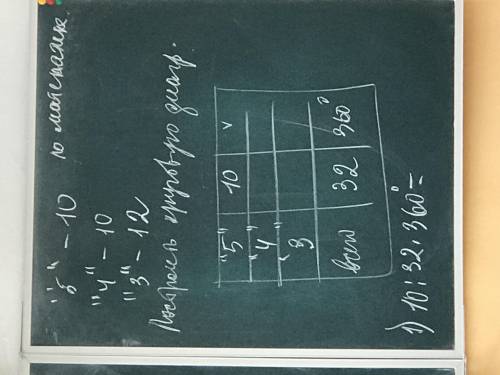 "5" - 10 по математике
"4" - 10
"3" - 12
Построить круговую диагр.
"5" 10 v
"4"
"3
всего 32 360°
1) 10 : 32 · 360° =